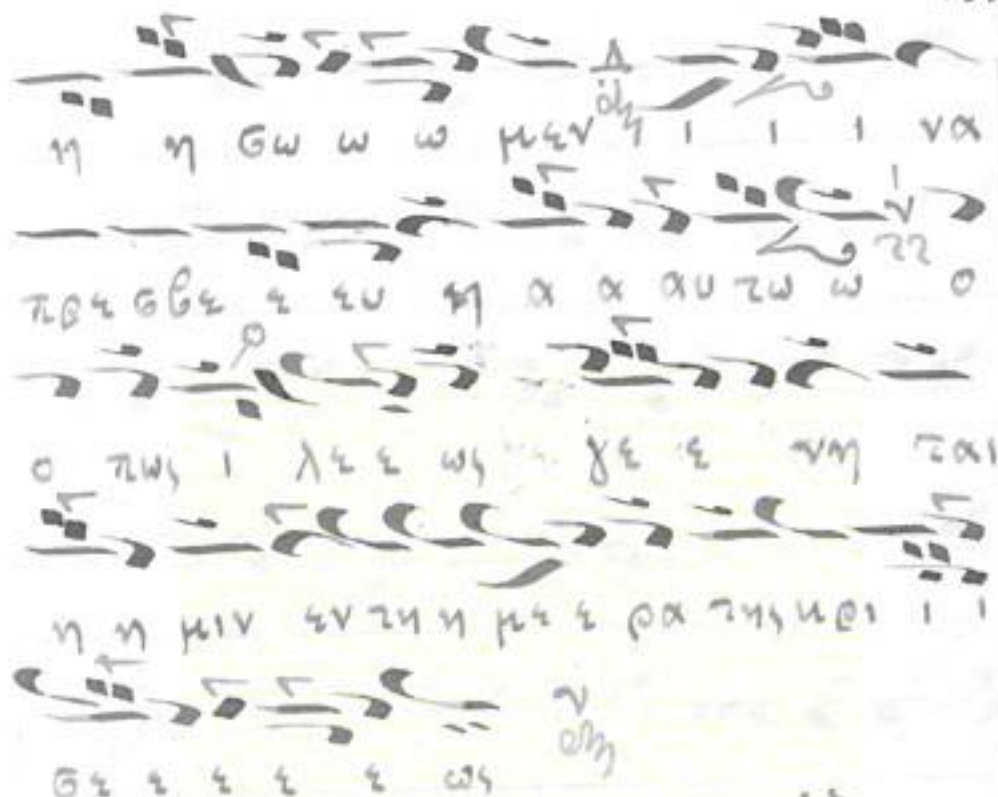 η η σω ω ω μεν ι ι ι ι να
πρε σβε ε ευ η α α αυ τω ω ο
ο πως ι λε ε ως γε ε νη ται
η η μιν εν τη η με ε ρα της κρι ι ι
σε ε ε ε ε ως